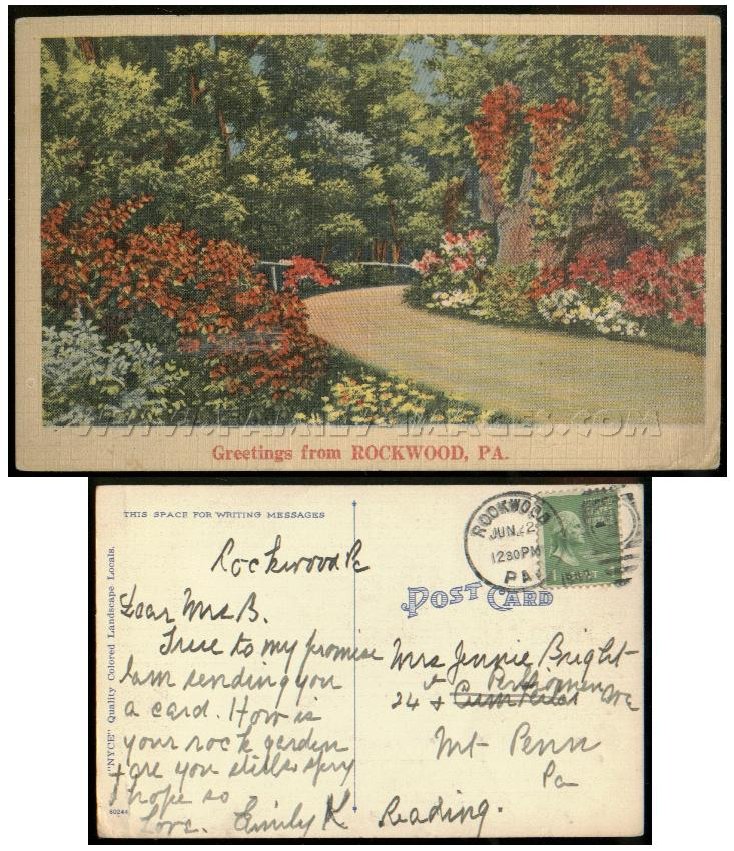 WWW.FAMILY-IMAGES.COM
Greetings from ROCKWOOD, PA.
THIS SPACE FOR WRITING MESSAGES
Rockwood Pa
Dear Mrs B.
True to my promise
I am sending you
a card. How is
your rock garden
+ are you still so spry
I hope so
Love. Emily K
"NYCE" Quality Colored Landscape Locals.
60244
ROCKWOOD
JUN 2
1230PM
PA
POST CARD
Mrs Jennie Bright
24 +
Ave
Mt Penn
Pa
Reading.